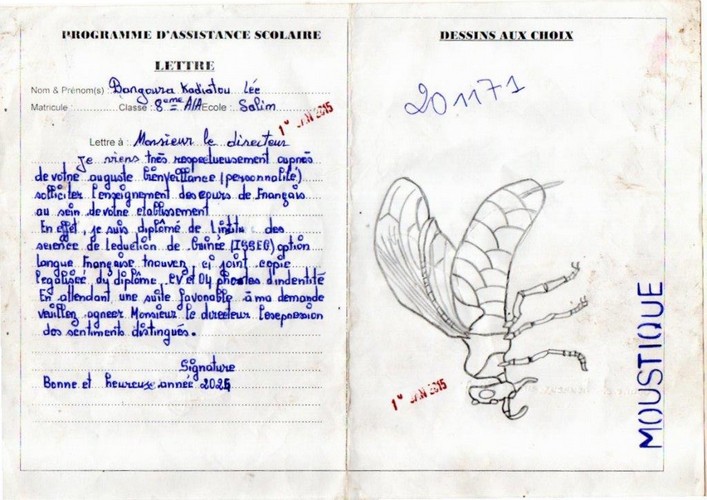 PROGRAMME D'ASSISTANCE SCOLAIRE
LETTRE
Nom & Prénom(s) Bangoura Kadiatou Lée
Matricule : Classe : 8eme A/A Ecole : Salim
1er JAN 2015
Lettre à : Monsieur le directeur
Je viens très respectueusement auprès
de votre auguste bienveillance (personnable)
solliciter l'enseignement des cours de Français
au sein de votre etablissement
En effet, je suis diplômé de l'institu des
science de leduction de Guinée (ISSEG) option
langue Française trouver ci joint copie
legalisée du diplôme, CV et 04 photos d'indentité
En attendant une suite favonable à ma demande
veuillez agneer Monsieur le directeur l'espression
des sentiments distingués.
Signature
Bonne et heureuse année 2025
DESSINS AUX CHOIX
201171
1er JAN 2015
MOUSTIQUE